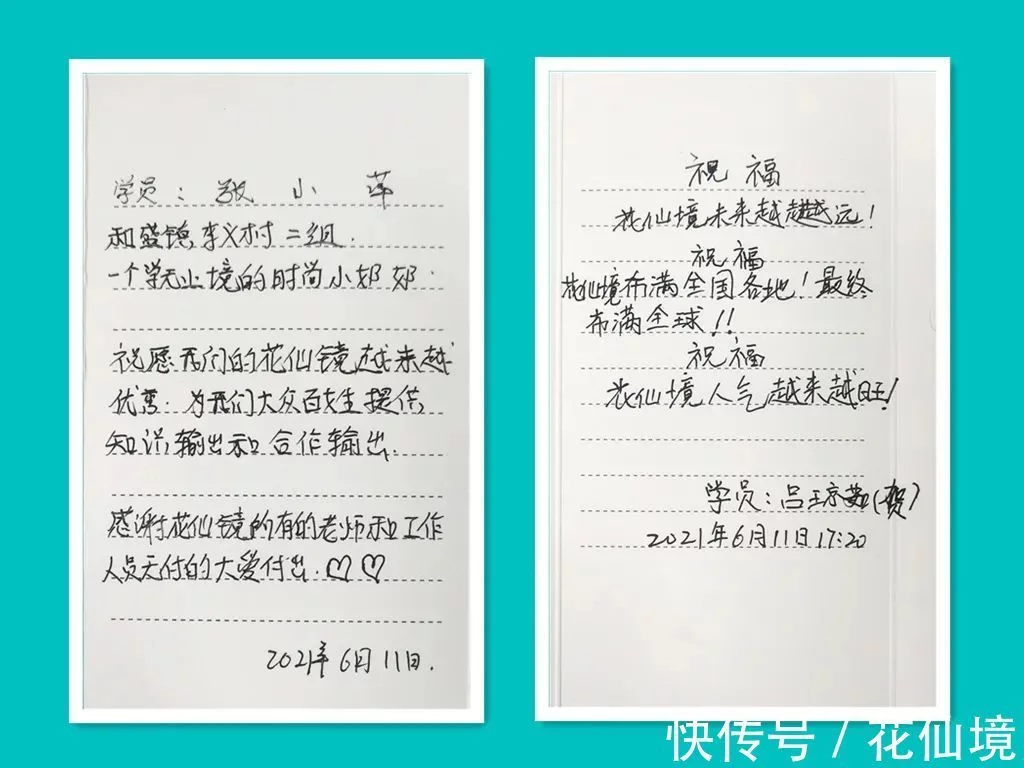 学员：敬小苹
和盛镇李义村二组.
一个学无止境的时尚小郑郑.
祝愿我们的花仙镜越来越
优秀：为我们大众百姓提供,
知识输出和合作输出.
感谢花仙镜所有的老师和工作
人员无付的大爱付出.♡♡
2021年6月11日.
祝福
花仙境未来越越远！
祝福
花仙境布满全国各地！最终
布满全球！！
祝福
花仙境人气越来越旺！
学员：吕琼(贺)
2021年6月11日17:20
快传号/花仙境